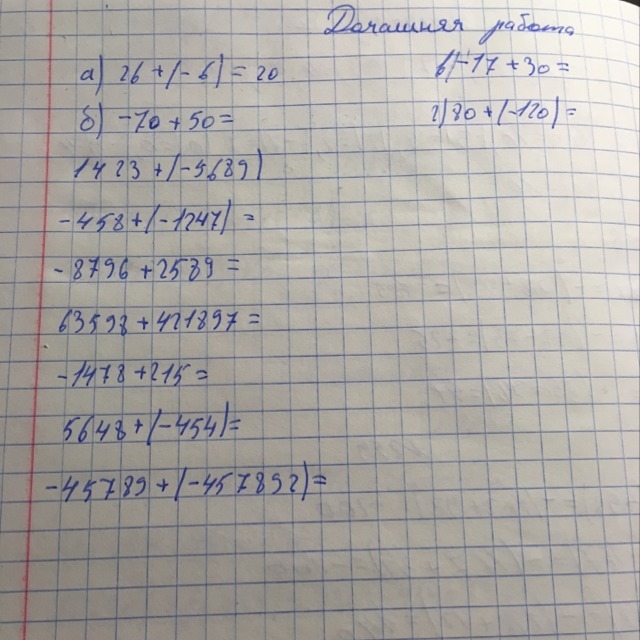 Домашняя работа
а) 26 + (-6) = 20
в) -17 + 30 =
б) -70 + 50 =
г) 80 + (-120) =
1423 + (-5689)
-458 + (-1247) =
-8796 + 2589 =
63598 + 421897 =
-1478 + 215 =
5648 + (-454) =
-45789 + (-457892) =